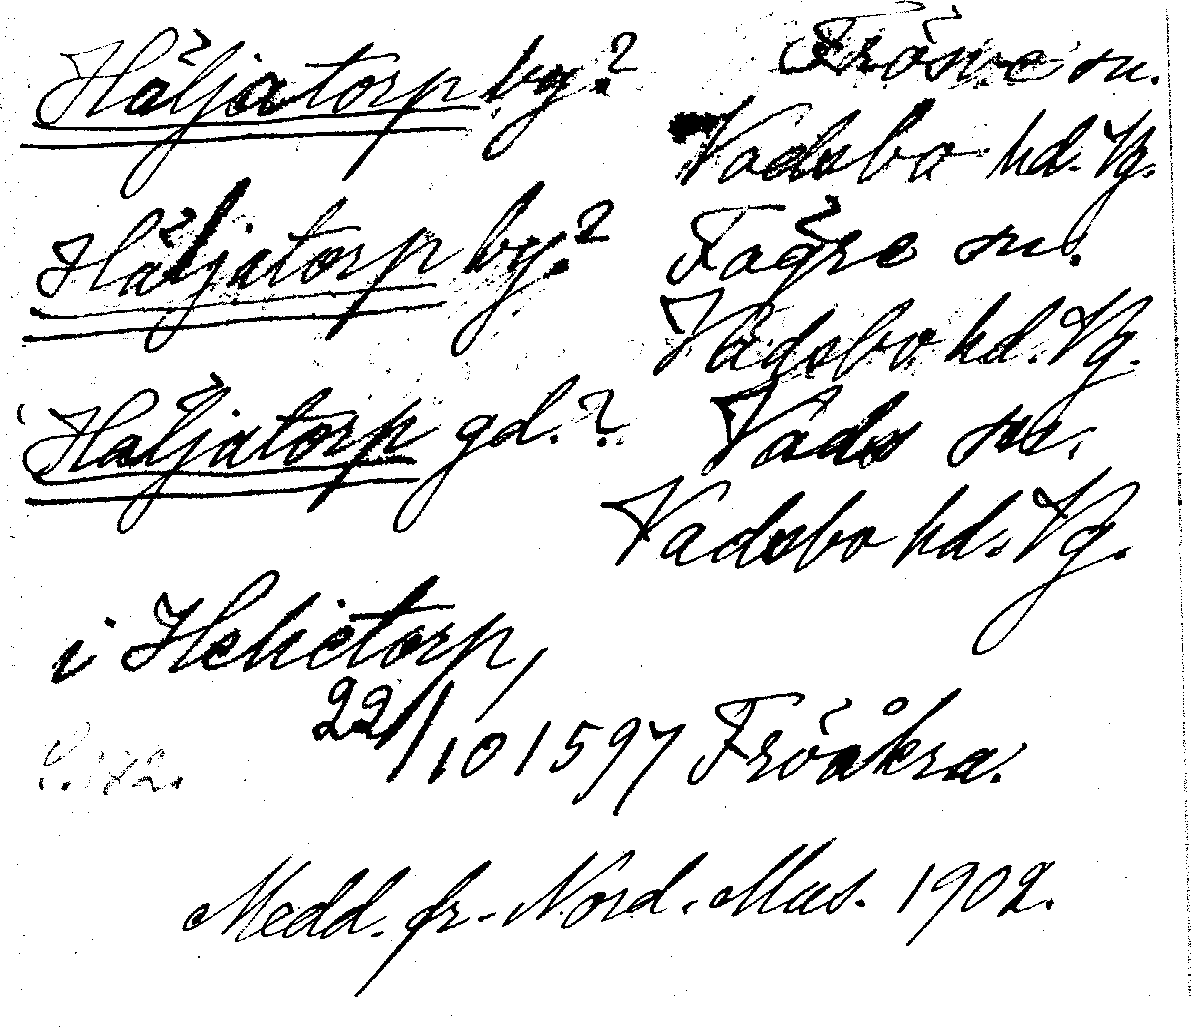 Häljatorp by? Frösve sn.
Vadsbo hd. Vg.
Häljatorp by? Fägre sn.
Vadsbo hd. Vg.
Häljatorp gd.? Vads sn.
Vadsbo hd. Vg.
i Helietorp,
22/10 1597 Fröåkra.
S. 182.
Medd. fr. Nord. Mus. 1902.